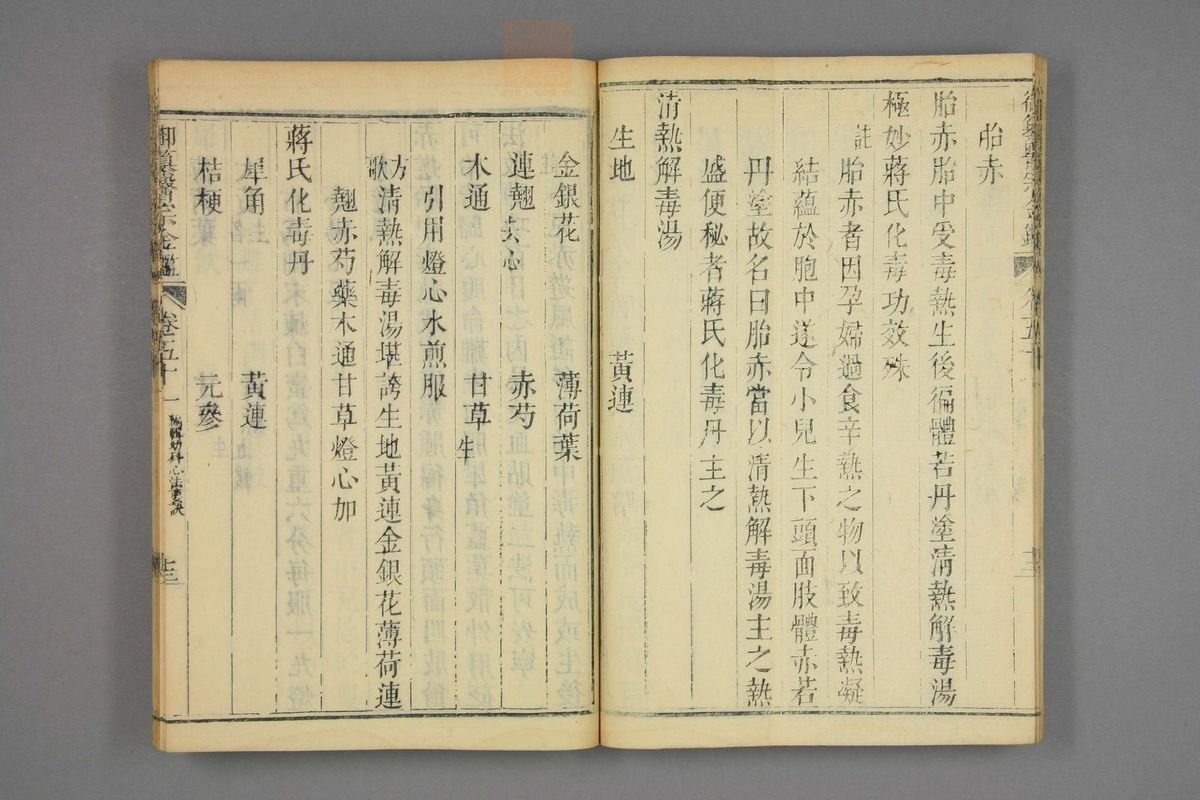 胎赤
胎赤胎中受毒熱生後徧體若丹塗清熱解毒湯
極妙蔣氏化毒功效殊
註胎赤者因孕婦過食辛熱之物以致毒熱凝
結蘊於胞中遂令小兒生下頭面肢體赤若
丹塗故名曰胎赤當以清熱解毒湯主之熱
盛便秘者蔣氏化毒丹主之
清熱解毒湯
生地 黃連
金銀花 薄荷葉
連翹去心 赤芍
木通 甘草生
引用燈心水煎服
方歌清熱解毒湯堪誇生地黃連金銀花薄荷連
翹赤芍藥木通甘草燈心加
蔣氏化毒丹
犀角 黃連
桔梗 元參
御纂醫宗金鑑 卷五十一 編輯幼科心法要訣